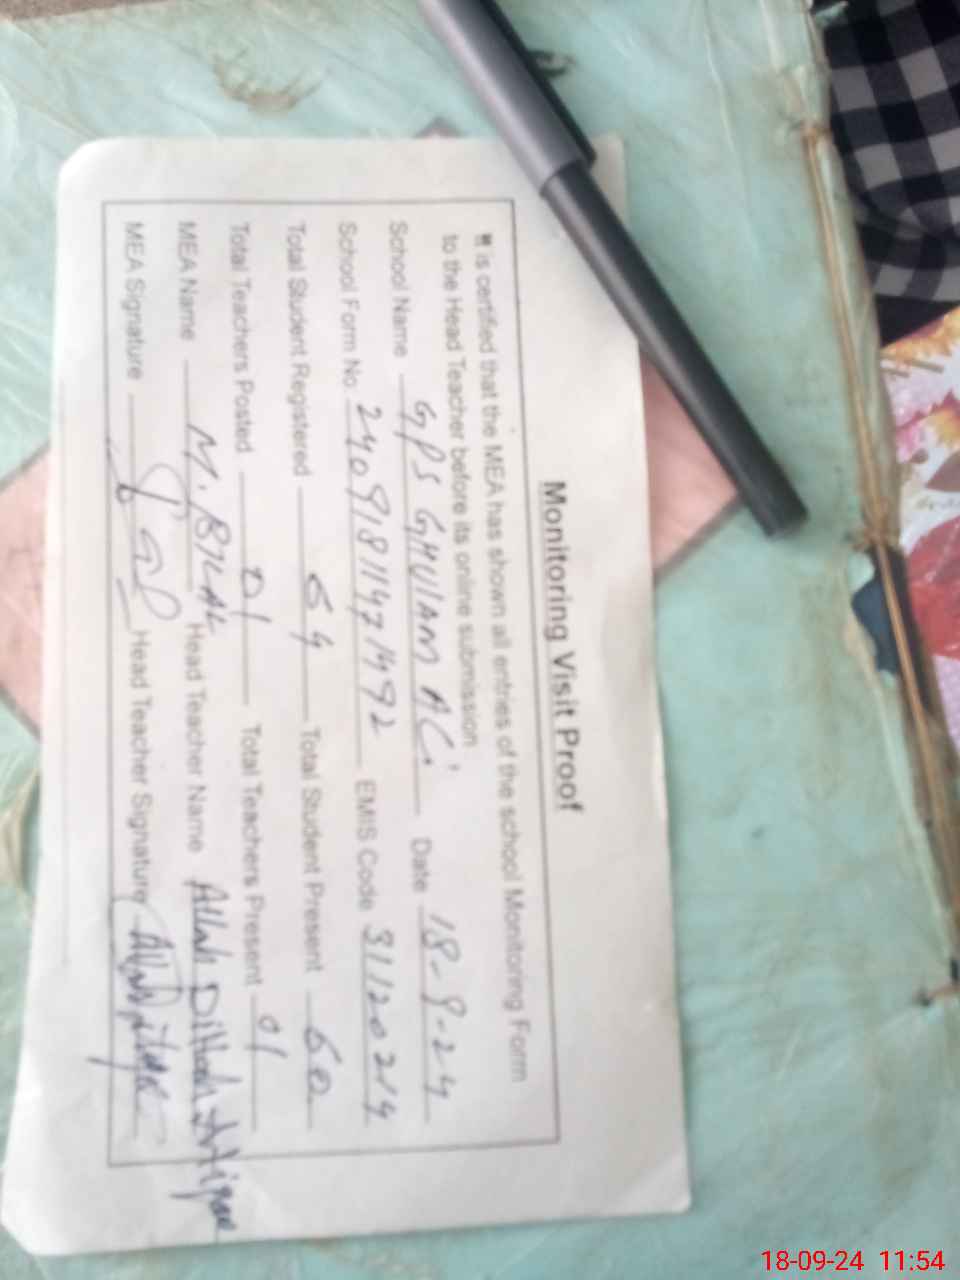 Monitoring Visit Proof
It is certified that the MEA has shown all entries of the school Monitoring Form
to the Head Teacher before its online submission
School Name GPS GHULAM ALi Date 18-9-24
School Form No. 24091811471492 EMIS Code 31120214
Total Student Registered 54 Total Student Present 50
Total Teachers Posted 01 Total Teachers Present 01
MEA Name M. BILAL Head Teacher Name Allah Dittah
MEA Signature Head Teacher Signature
18-09-24 11:54